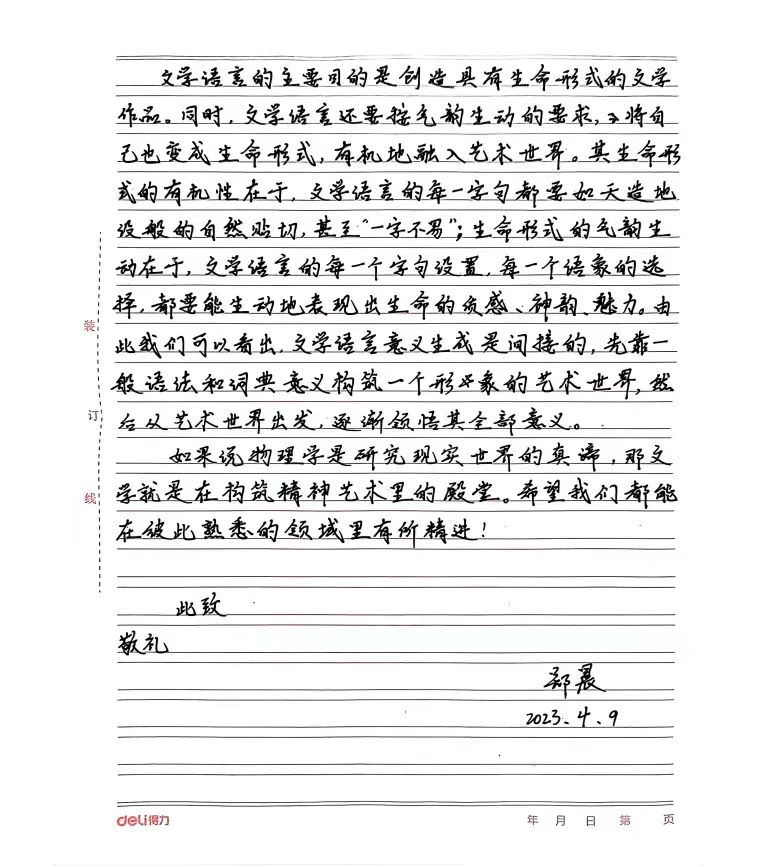 文学语言的主要目的是创造具有生命形式的文学
作品。同时，文学语言还要按气韵生动的要求，将自
己也变成生命形式，有机地融入艺术世界。其生命形
式的有机性在于，文学语言的每一字句都要如天造地
设般的自然贴切，甚至“一字不易”；生命形式的气韵生
动在于，文学语言的每一个字句设置，每一个语象的选
择，都要能生动地表现出生命的质感、神韵、魅力。由
此我们可以看出，文学语言意义生成是间接的，先靠一
般语法和词典意义构筑一个形象的艺术世界，然
后从艺术世界出发，逐渐领悟其全部意义。
如果说物理学是研究现实世界的真谛，那文
学就是在构筑精神艺术里的殿堂。希望我们都能
在彼此熟悉的领域里有所精进！
此致
敬礼
郑晨
2023.4.9
装
订
线
deli得力
年 月 日 第 页